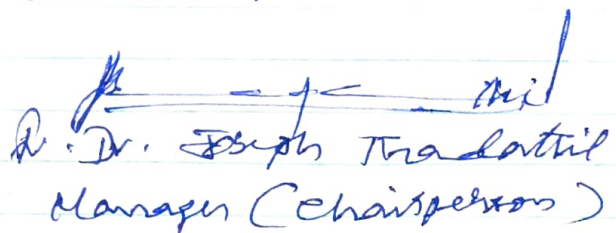 Dr. Joseph Thadathil
Manager (Chairperson)